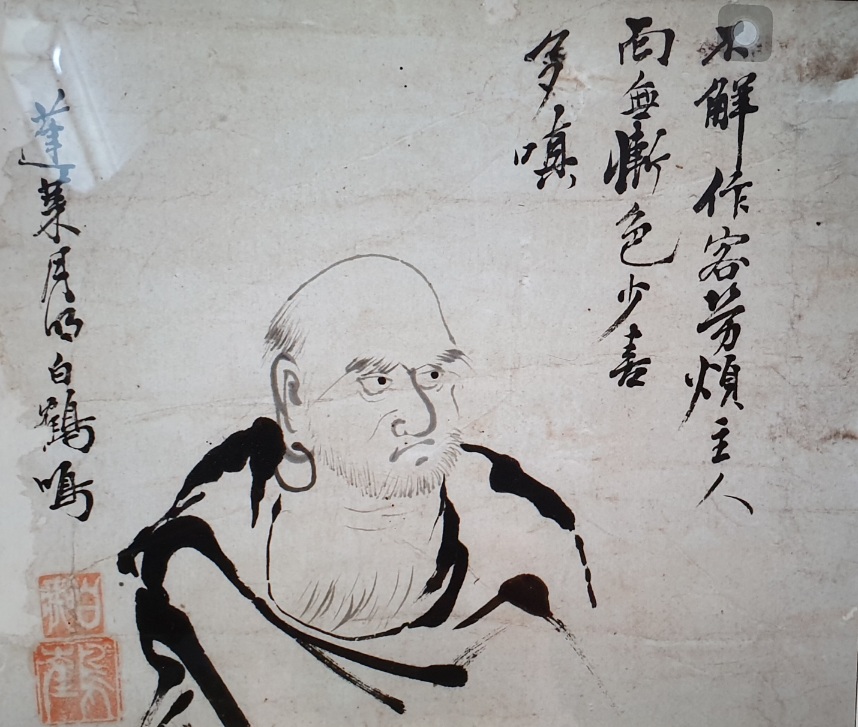 不解作客労煩主人
面無慚色少喜
多嗔
蓬莱月明白鶴鳴